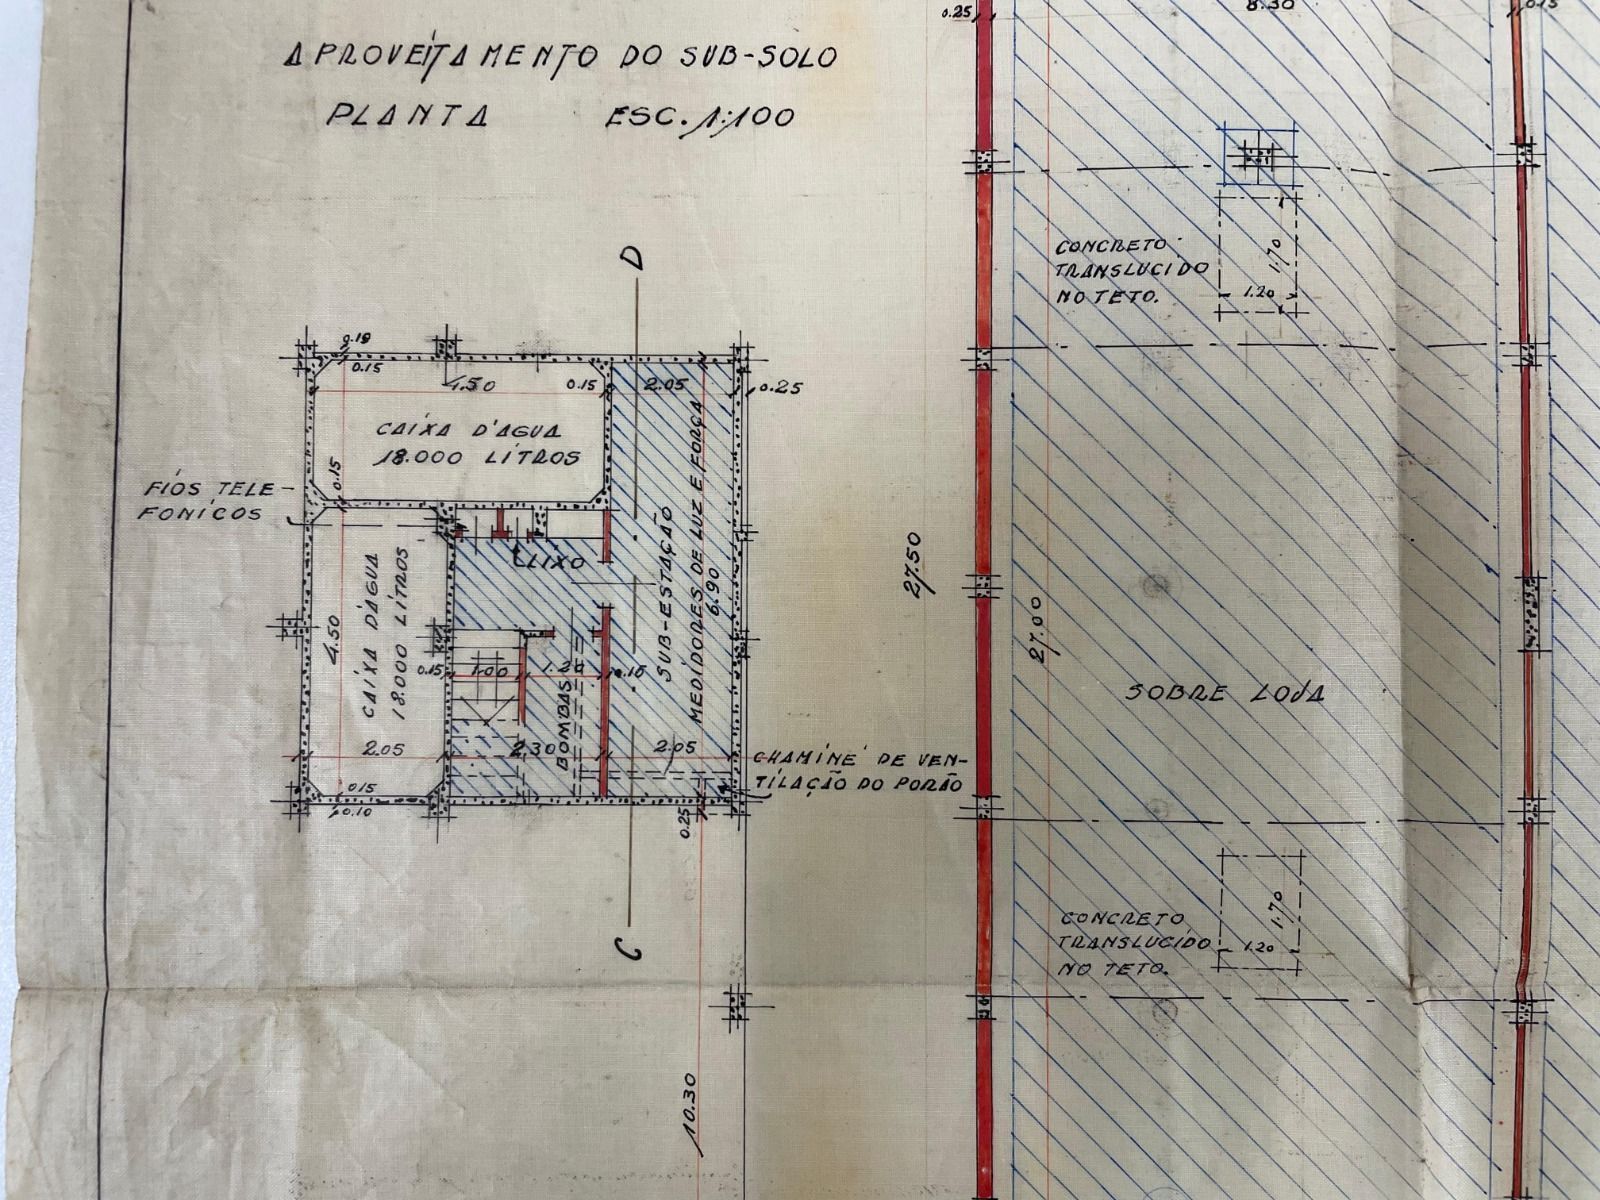 APROVEITAMENTO DO SUB-SOLO
PLANTA ESC. 1:100
0.25
8.30
0.15
D
CONCRETO
TRANSLUCIDO
NO TETO.
1.70
1.20
0.15
4.50
0.15
2.05
0.25
CAIXA D'AGUA
18.000 LITROS
0.15
FIOS TELE-
FONICOS
LIXO
CAIXA D'AGUA
18.000 LITROS
4.50
SUB-ESTAÇÃO
MEDIDORES DE LUZ E FORÇA
6.90
0.15
1.00
1.20
0.15
BOMBAS
2.05
2.30
2.05
CHAMINÉ DE VEN-
TILAÇÃO DO PORÃO
0.15
0.10
0.25
C
27.50
27.00
SOBRE LOJA
CONCRETO
TRANSLUCIDO
NO TETO.
1.70
1.20
10.30